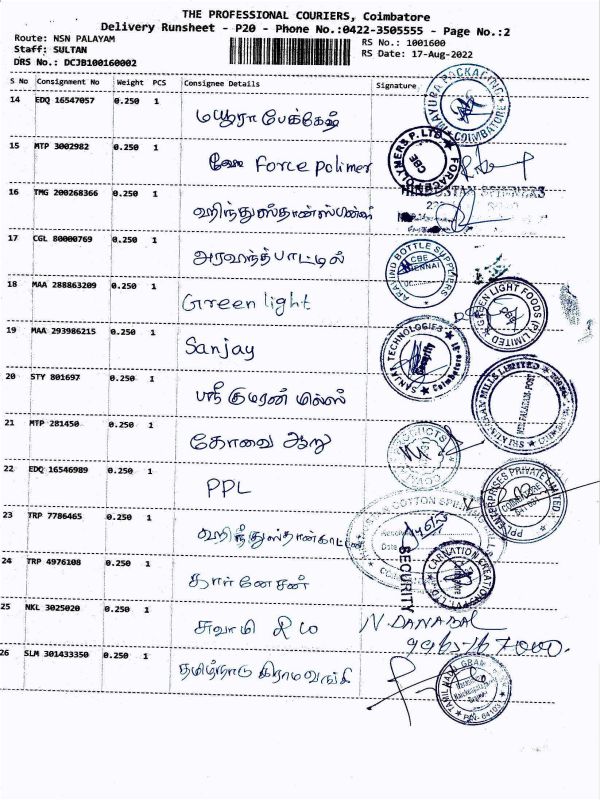 THE PROFESSIONAL COURIERS, Coimbatore
Delivery Runsheet - P20 - Phone No.:0422-3505555 - Page No.:2
Route: NSN PALAYAM
RS No.: 1001600
Staff: SULTAN
RS Date: 17-Aug-2022
DRS No.: DCJB100160002
S No Consignment No Weight PCS Consignee Details Signature
14 EDQ 16547057 0.250 1 மயூரா பேக்கேஜ்
MAYURA PACKAGING COIMBATORE
15 MTP 3002982 0.250 1 Force polimer
POLYMERS P. LTD CBE
16 TMG 200268366 0.250 1 ஹிந்துஸ்தான் ஸ்பின்னர்ஸ்
HINDUSTAN SPINNERS
17 CGL 80000769 0.250 1 அரவிந்த் பாட்டில்
ARAVIND BOTTLE SUPPLIERS
CBE
CHENNAI
18 MAA 288863209 0.250 1 Green light
GREEN LIGHT FOODS (P) LIMITED
19 MAA 293986215 0.250 1 Sanjay
SANJAY TECHNOLOGIES Coimbatore
Security
20 STY 801697 0.250 1 ஸ்ரீ குமரன் மில்ஸ்
MILLS LIMITED
21 MTP 281450 0.250 1 கோவை ஆறு
PRODUCTS
22 EDQ 16546989 0.250 1 PPL
PPL ENTERPRISES PRIVATE LIMITED
23 TRP 7786465 0.250 1 ஹிந்துஸ்தான் காட்டன்
COTTON
Date
24 TRP 4976108 0.250 1 கார்னேசன்
SECURITY
CARNATION CREATIONS
25 NKL 3025020 0.250 1 சுவாமி & co
N. DANABAL
26 SLM 301433350 0.250 1 தமிழ்நாடு கிராம வங்கி
TAMIL NADU GRAMA